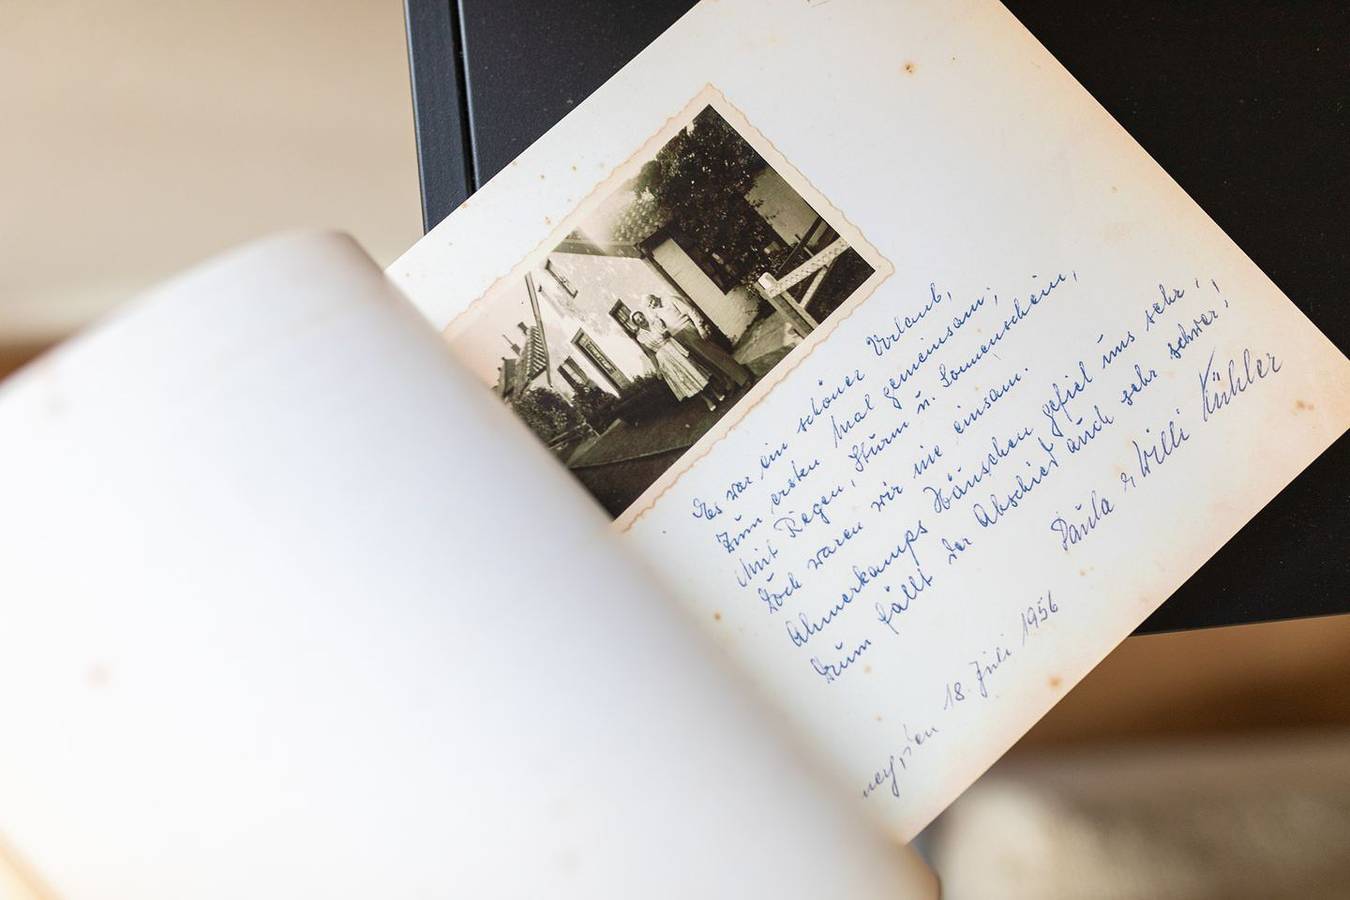 Es war ein schöner Urlaub,
Zum ersten Mal gemeinsam;
Mit Regen, Sturm u. Sonnenschein,
Doch waren wir nie einsam.
Ahmerkamps Häuschen gefiel uns sehr,
Drum fällt der Abschied auch sehr schwer!
Paula & Willi Kühler
ney, den 18. Juli 1956